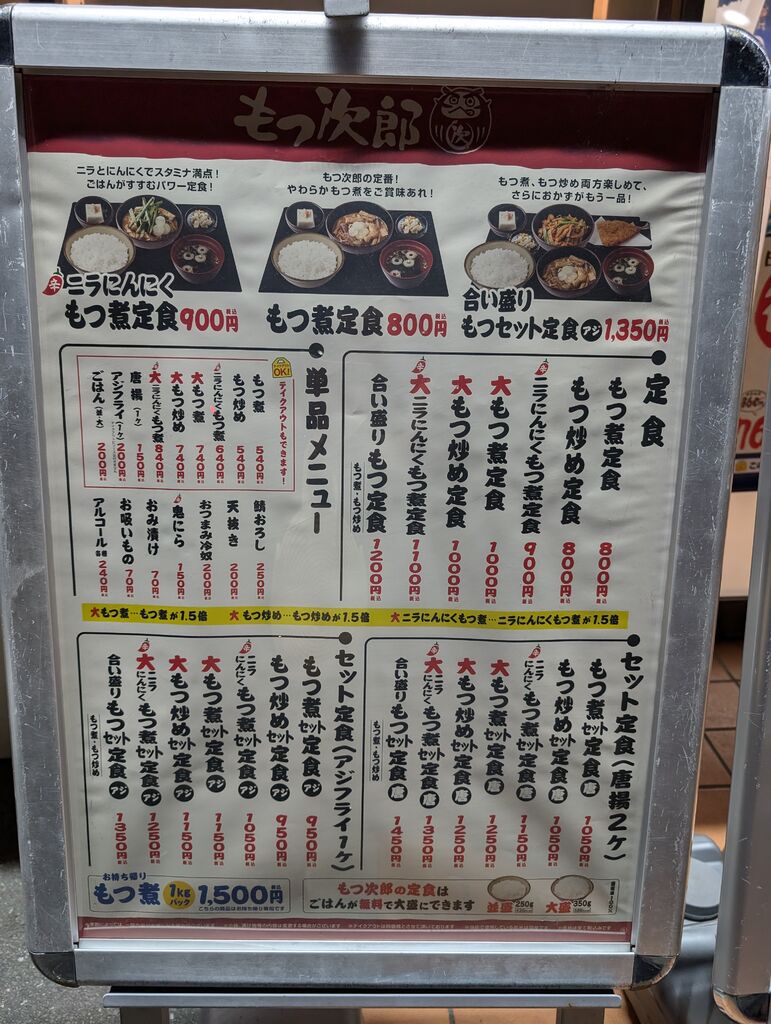 もつ次郎
次
ニラとにんにくでスタミナ満点!
ごはんがすすむパワー定食!
辛 ニラにんにく
もつ煮定食 900円 税込
もつ次郎の定番!
やわらかもつ煮をご賞味あれ!
もつ煮定食 800円 税込
もつ煮、もつ炒め両方楽しめて、
さらにおかずがもう一品!
合い盛り
もつセット定食 アジ 1,350円 税込
定食
もつ煮定食 800円 税込
もつ炒め定食 800円 税込
辛 ニラにんにくもつ煮定食 900円 税込
大もつ煮定食 1000円 税込
大もつ炒め定食 1000円 税込
辛 大ニラにんにくもつ煮定食 1100円 税込
合い盛りもつ定食 1200円 税込
もつ煮・もつ炒め
単品メニュー
OK!
テイクアウトもできます!
もつ煮 540円
もつ炒め 540円
ニラにんにくもつ煮 640円
大もつ煮 740円
大もつ炒め 740円
大ニラにんにくもつ煮 840円
唐揚(1ケ) 150円
アジフライ(1ケ) 200円
ごはん(並・大) 200円
鯖おろし 250円
天抜き 200円
おつまみ冷奴 200円
鬼にら 150円
おみ漬け 70円
お吸いもの 70円
アルコール各種 240円
大もつ煮…もつ煮が1.5倍 大もつ炒め…もつ炒めが1.5倍 大ニラにんにくもつ煮…ニラにんにくもつ煮が1.5倍
セット定食(唐揚2ケ)
もつ煮セット定食 唐 1050円 税込
もつ炒めセット定食 唐 1050円 税込
辛 ニラにんにくもつ煮セット定食 唐 1150円 税込
大もつ煮セット定食 唐 1250円 税込
大もつ炒めセット定食 唐 1250円 税込
辛 大ニラにんにくもつ煮セット定食 唐 1350円 税込
合い盛りもつセット定食 唐 1450円 税込
もつ煮・もつ炒め
セット定食(アジフライ1ケ)
もつ煮セット定食 アジ 950円 税込
もつ炒めセット定食 アジ 950円 税込
辛 ニラにんにくもつ煮セット定食 アジ 1050円 税込
大もつ煮セット定食 アジ 1150円 税込
大もつ炒めセット定食 アジ 1150円 税込
辛 大ニラにんにくもつ煮セット定食 アジ 1250円 税込
合い盛りもつセット定食 アジ 1350円 税込
もつ煮・もつ炒め
お持ち帰り
もつ煮 1kgパック 1,500円 税込
こちらの商品はお持ち帰り専用です
もつ次郎の定食は
ごはんが無料で大盛にできます
並盛 250g
大盛 350g